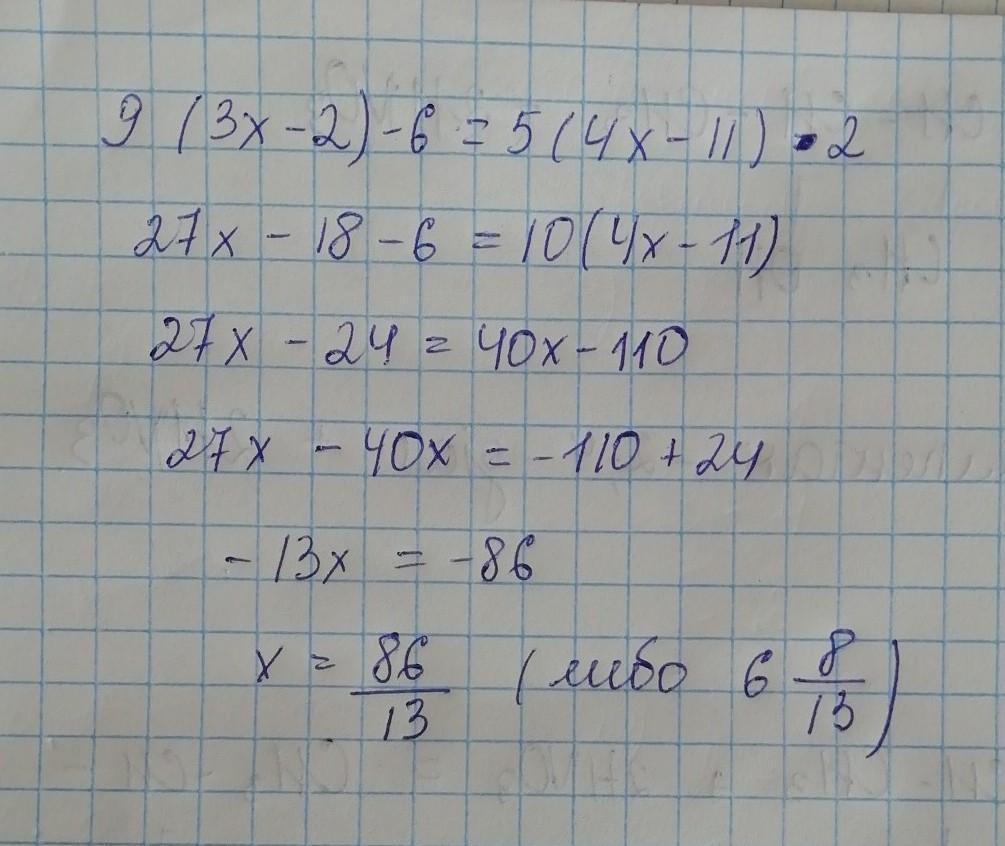 9 (3x - 2) - 6 = 5 (4x - 11) · 2
27x - 18 - 6 = 10(4x - 11)
27x - 24 = 40x - 110
27x - 40x = -110 + 24
-13x = -86
x = 86/13 (либо 6 8/13)